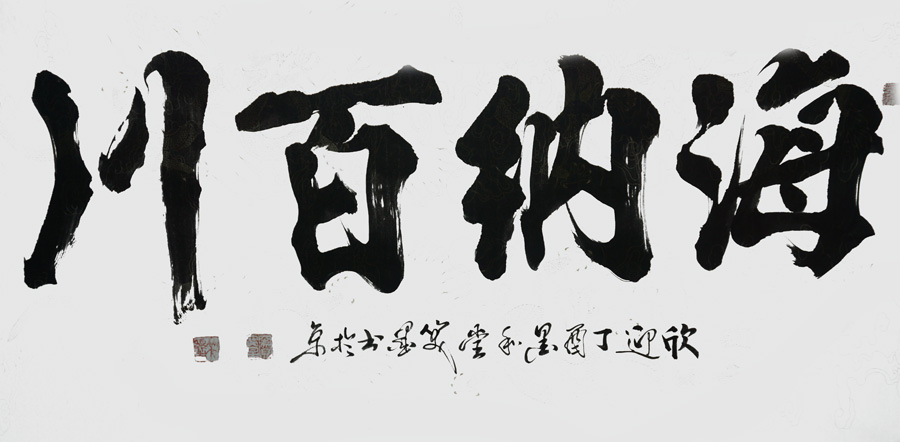 海纳百川
欣迎丁酉墨和堂墨书於京